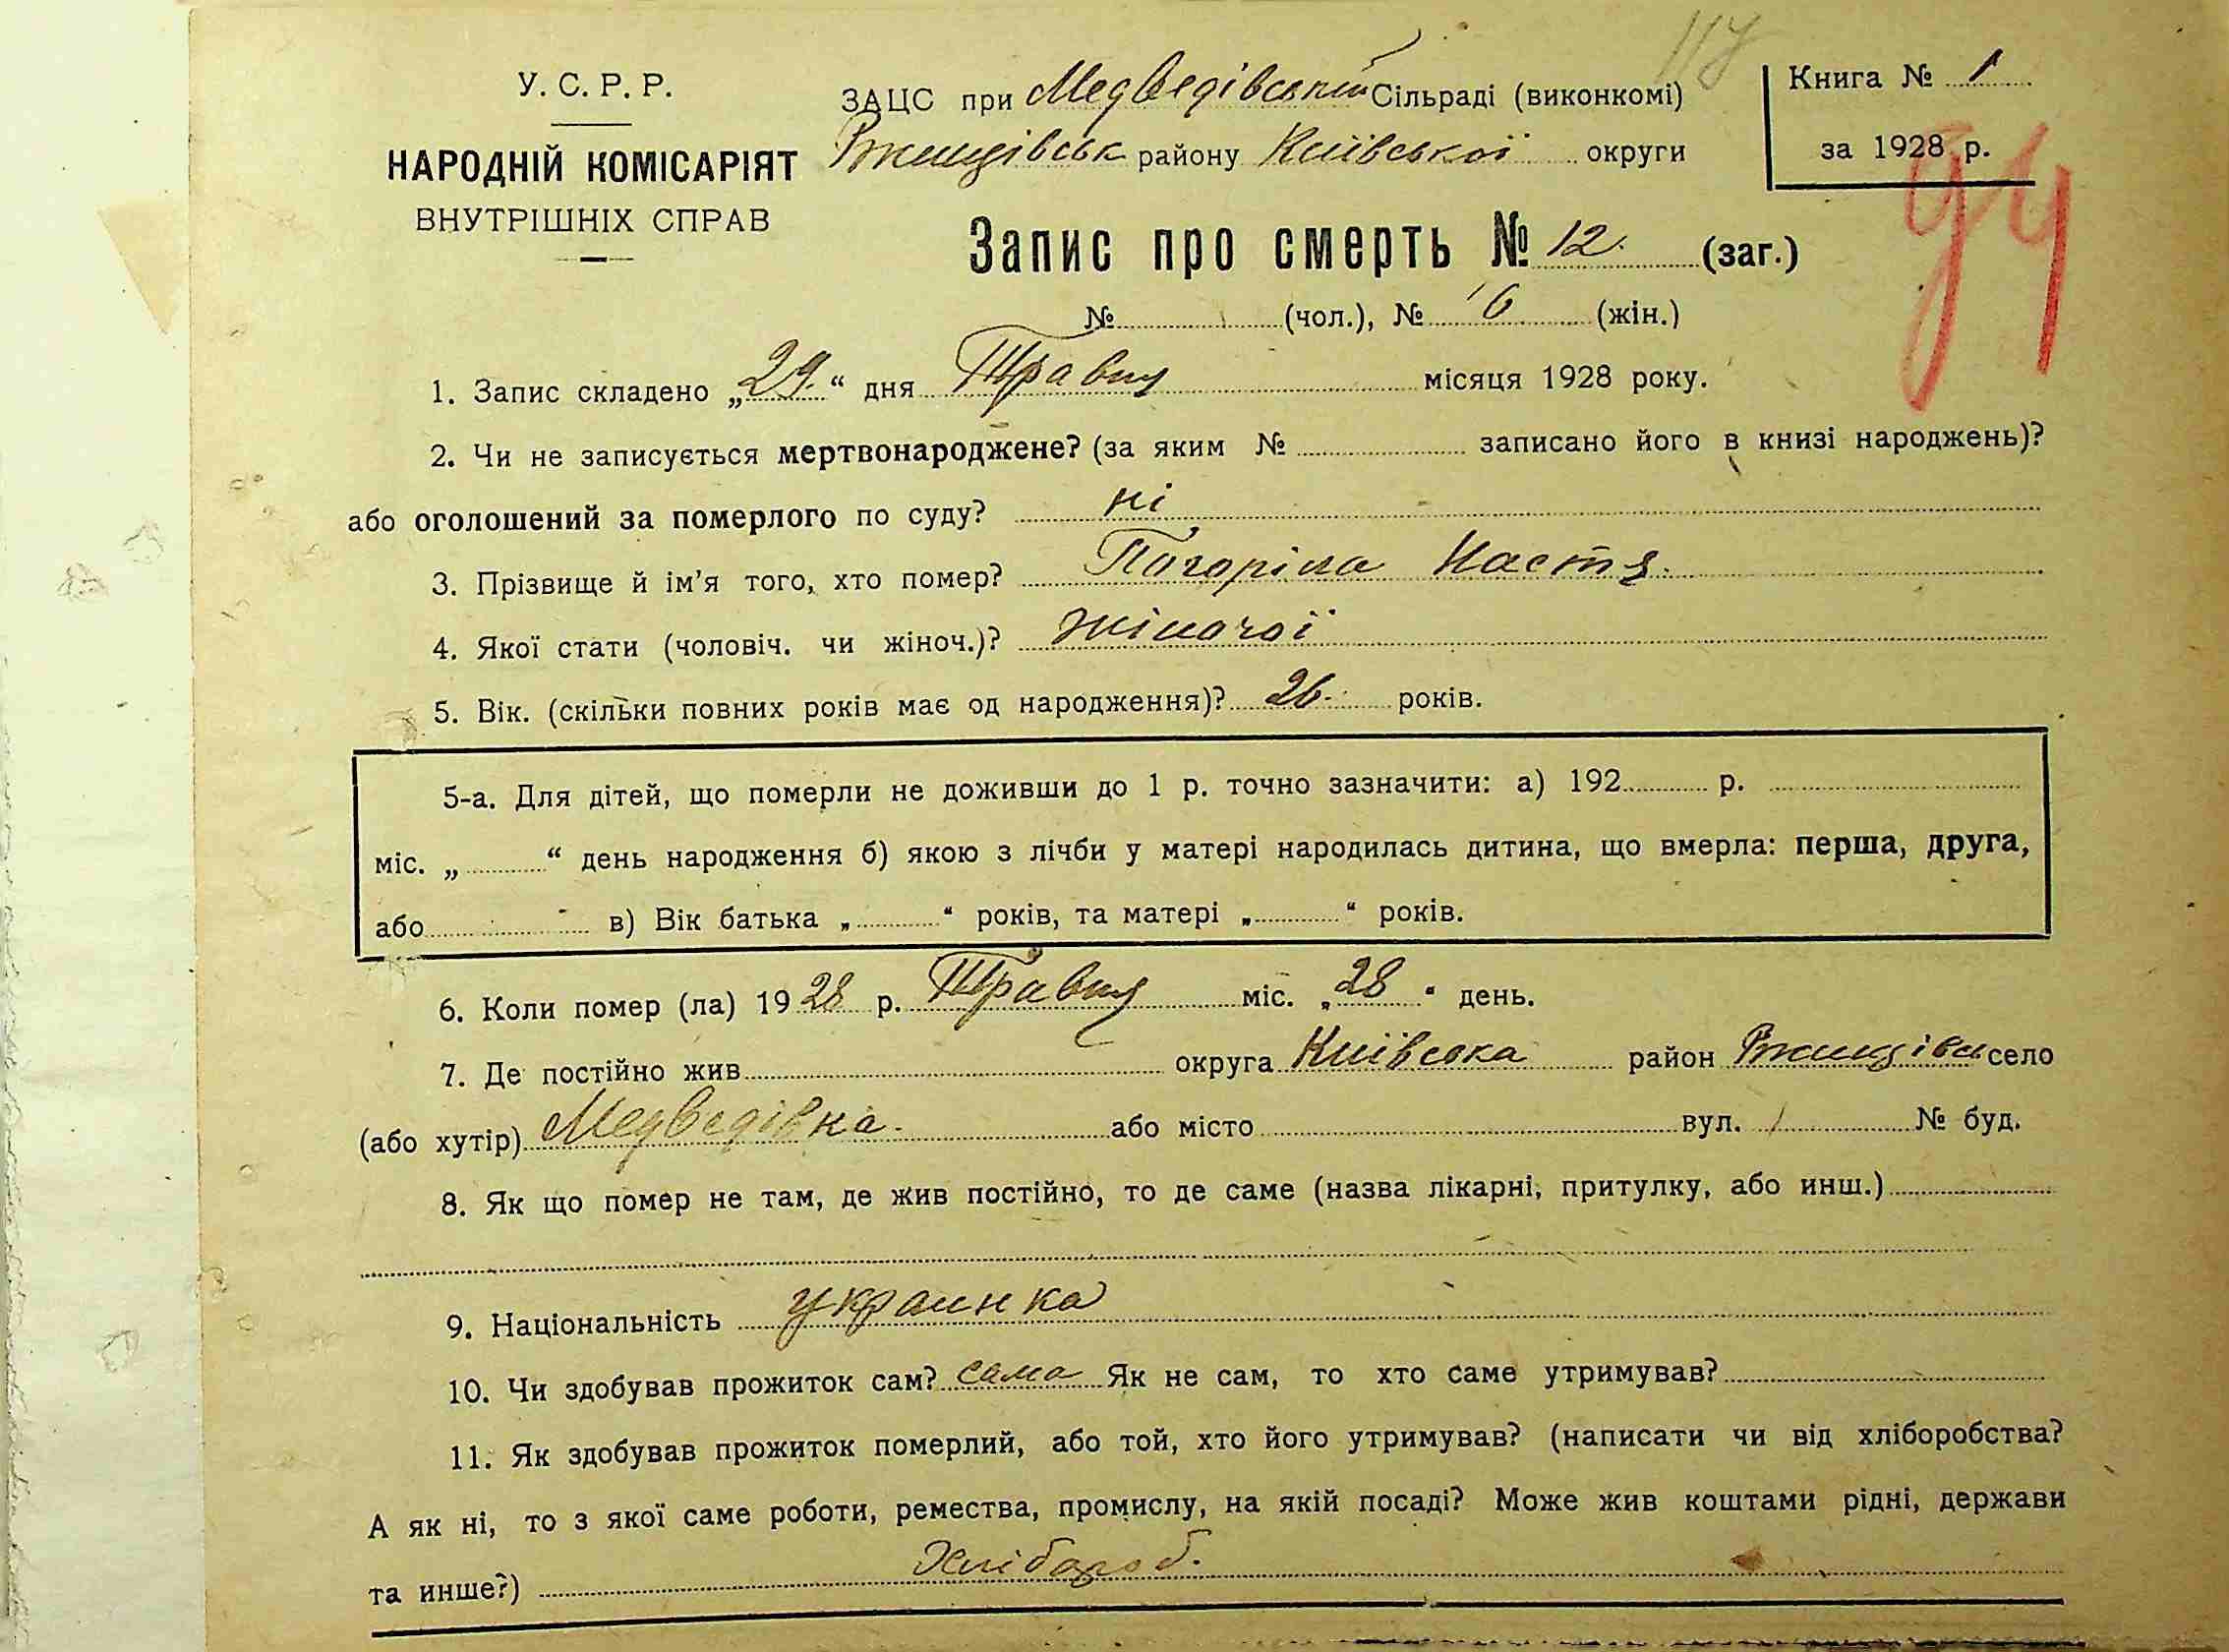 117
У. С. Р. Р.
НАРОДНІЙ КОМІСАРІЯТ
ВНУТРІШНІХ СПРАВ
ЗАЦС при Медведівській Сільраді (виконкомі)
Ржищівськ району Київської округи
Книга № 1
за 1928 р.
94
Запис про смерть № 12. (заг.)
№ (чол.), № 6 (жін.)
1. Запис складено „29.“ дня Травня місяця 1928 року.
2. Чи не записується мертвонароджене? (за яким № записано його в книзі народжень)?
або оголошений за померлого по суду? ні
3. Прізвище й ім’я того, хто помер? Погоріла Настя.
4. Якої стати (чоловіч. чи жіноч.)? жіночої
5. Вік. (скільки повних років має од народження)? 26. років.
5-а. Для дітей, що померли не доживши до 1 р. точно зазначити: а) 192 р.
міс. „ “ день народження б) якою з лічби у матері народилась дитина, що вмерла: перша, друга,
або в) Вік батька „ “ років, та матері „ “ років.
6. Коли помер (ла) 1928 р. Травня міс. „28“ день.
7. Де постійно жив округа Київська район Ржищівськ село
(або хутір) Медведівка. або місто вул. № буд.
8. Як що помер не там, де жив постійно, то де саме (назва лікарні, притулку, або инш.)
9. Національність украинка
10. Чи здобував прожиток сам? сама Як не сам, то хто саме утримував?
11. Як здобував прожиток померлий, або той, хто його утримував? (написати чи від хліборобства?
А як ні, то з якої саме роботи, ремества, промислу, на якій посаді? Може жив коштами рідні, держави
та инше?) Хлібороб.